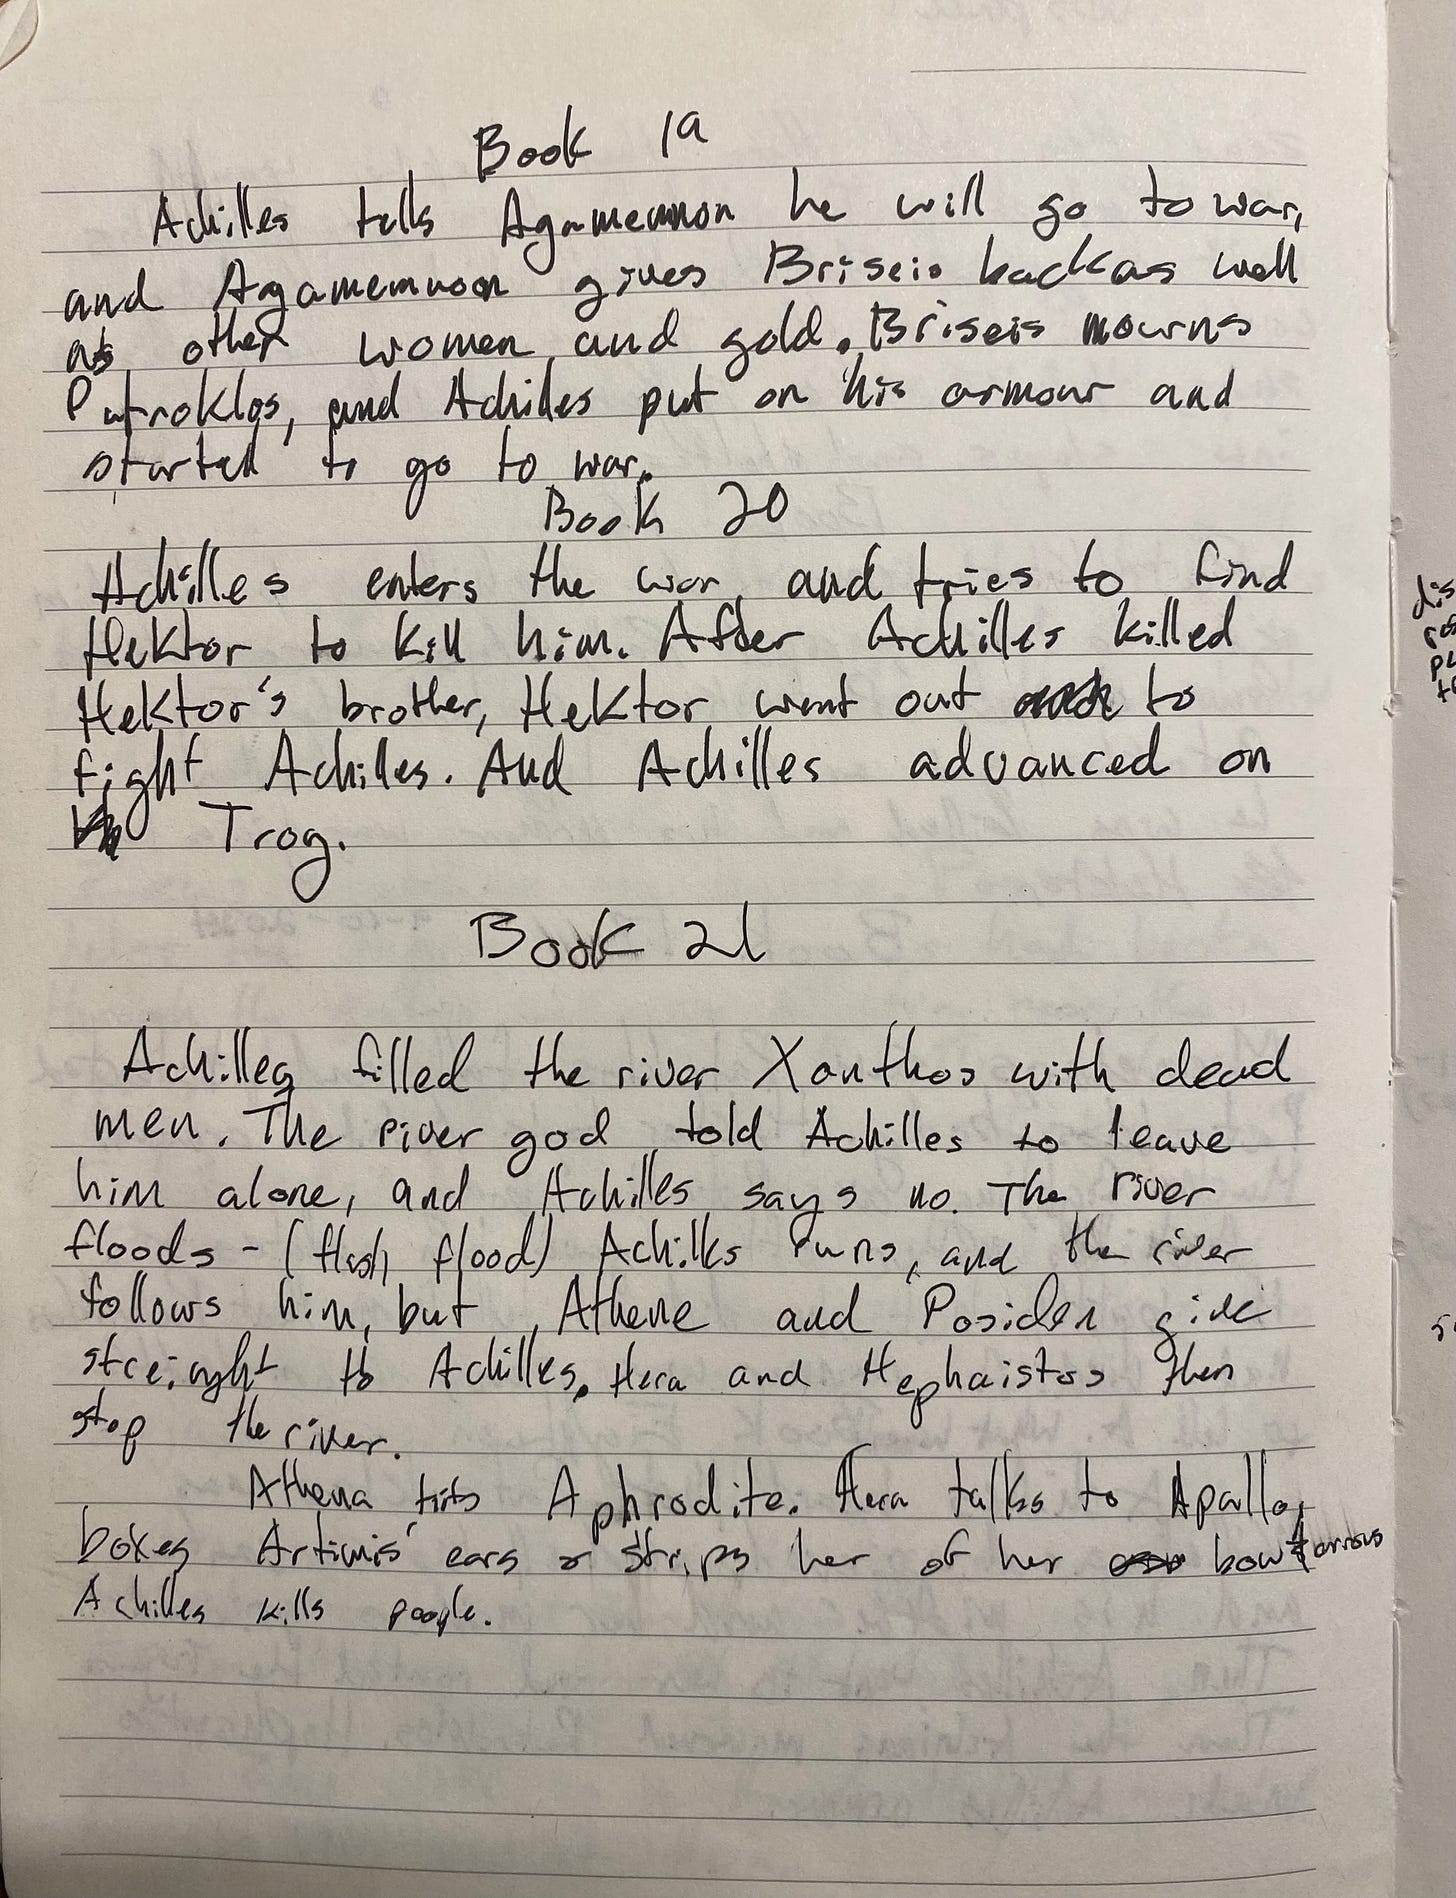 Book 19
Achilles tells Agamemnon he will go to war,
and Agamemnon gives Briseis back as well
as other women and gold. Briseis mourns
Patroklos, and Achilles put on his armour and
started to go to war.
Book 20
Achilles enters the war, and tries to find
Hektor to kill him. After Achilles killed
Hektor's brother, Hektor went out to
fight Achilles. And Achilles advanced on
Troy.
Book 21
Achilles filled the river Xanthos with dead
men. The river god told Achilles to leave
him alone, and Achilles says no. The river
floods - (flash flood) Achilles runs, and the river
follows him, but Athene and Posiden give
streinght to Achilles. Hera and Hephaistos then
stop the river.
Athena hits Aphrodite. Hera talks to Apallo,
boxes Artimis' ears & strips her of her bow & arrows
Achilles kills people.